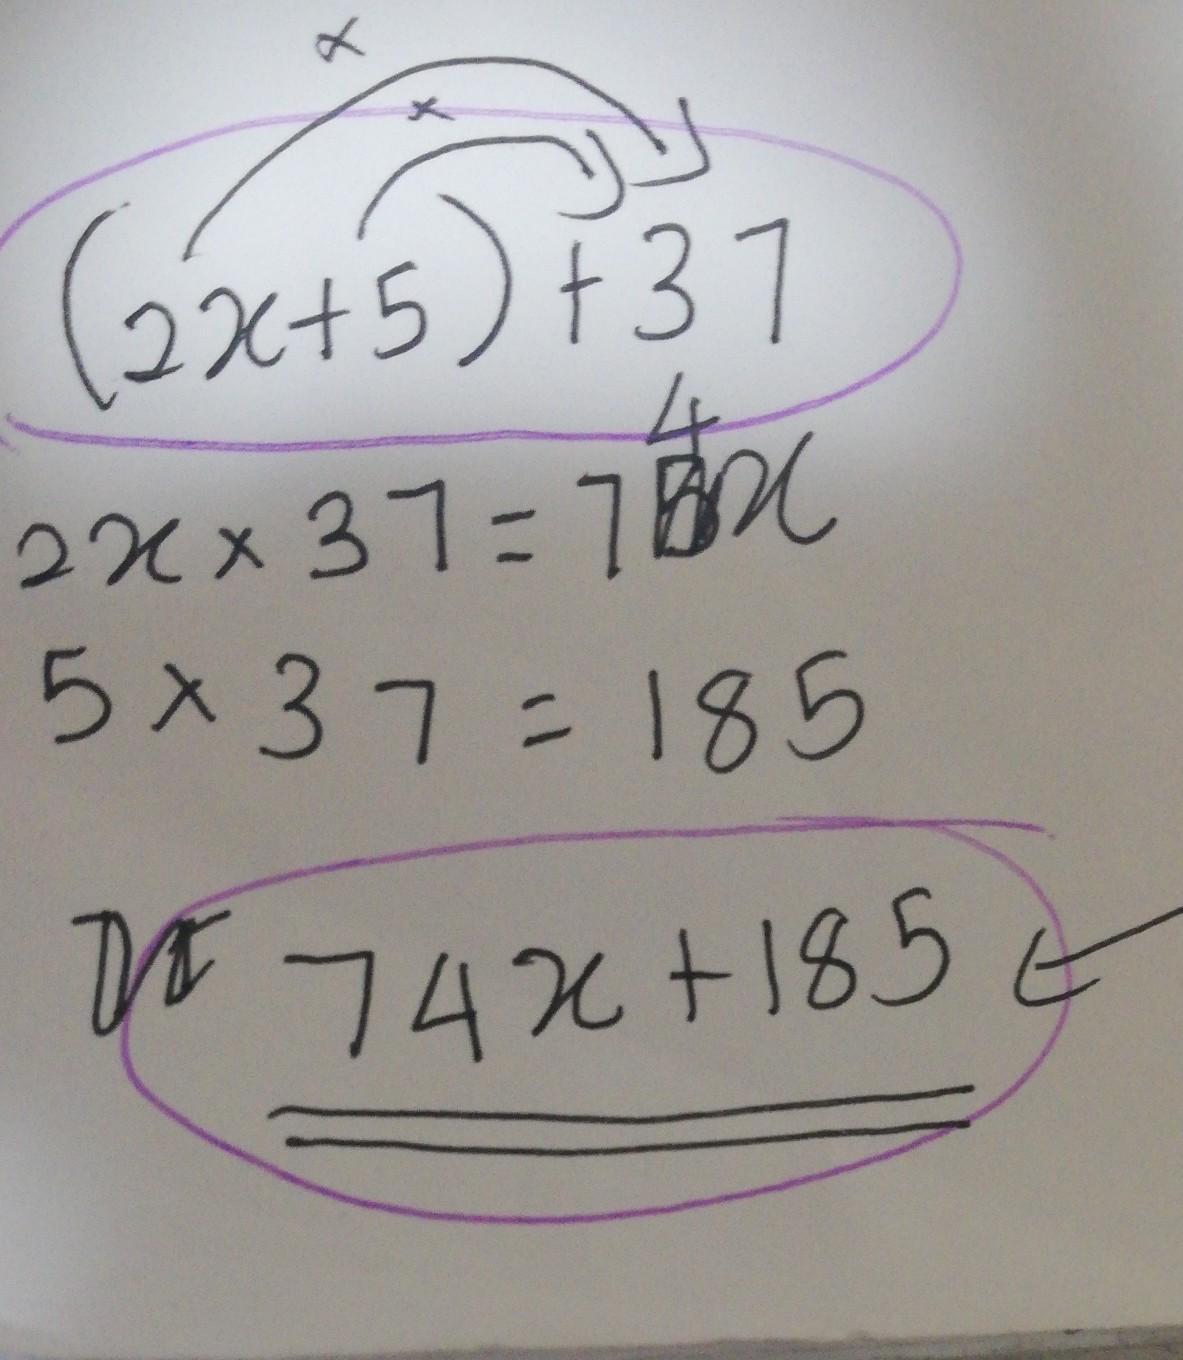 × ×
(2x+5)+37
2x×37=74x
5×37=185
74x+185